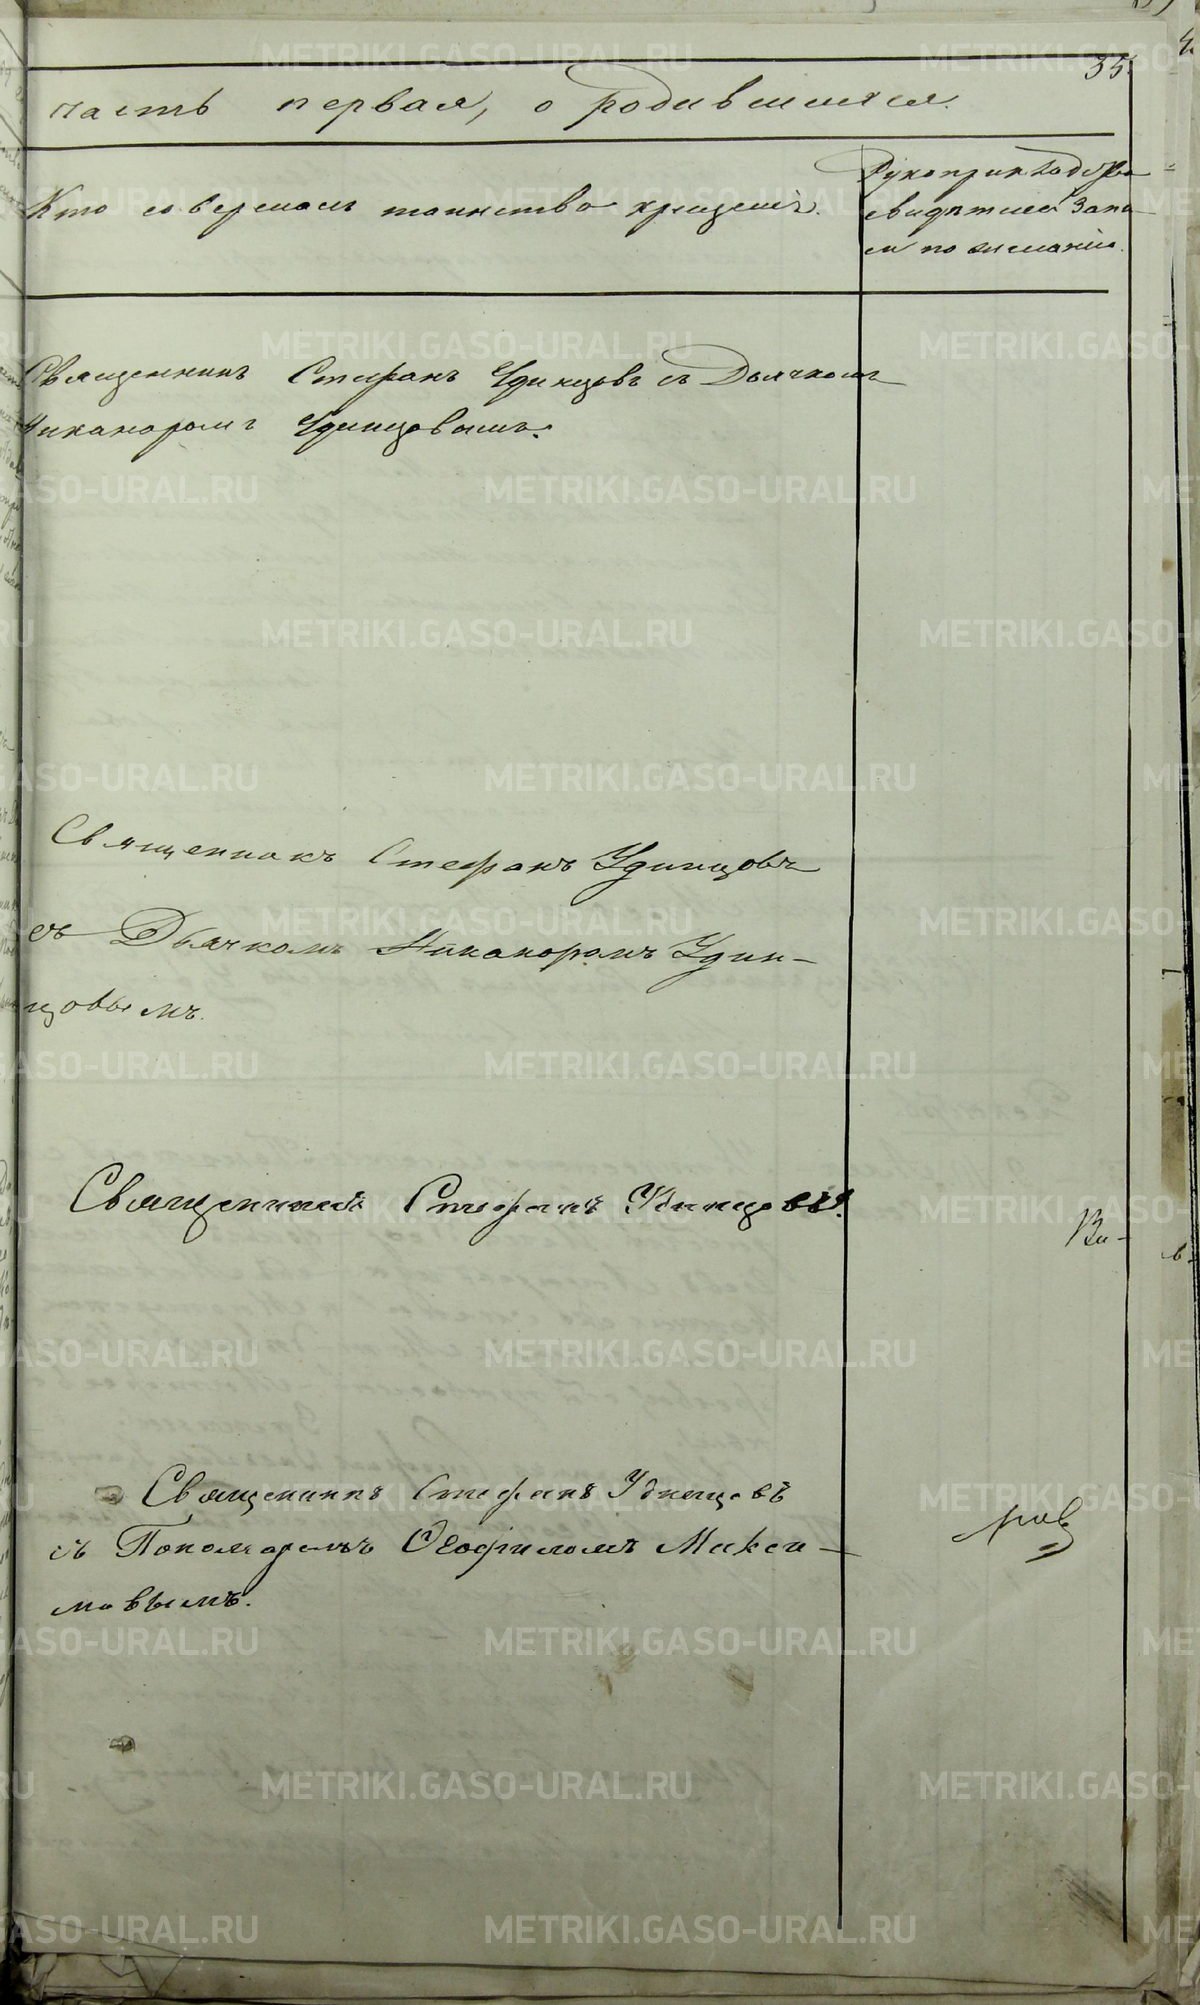 35
часть первая, о родившихся.
Кто совершалъ таинство крещенія.
Рукоприкладство
свидѣтелей запи-
си по желанію.
Священникъ Стефанъ Удинцовъ съ Дьячкомъ
Никаноромъ Удинцовымъ.
Священникъ Стефанъ Удинцовъ
съ Дьячкомъ Никаноромъ Удин-
цовымъ.
Священникъ Стефанъ Удинцовъ.
Священникъ Стефанъ Удинцовъ
съ Пономаремъ Ѳеофиломъ Макси-
мовымъ.
METRIKI.GASO-URAL.RU